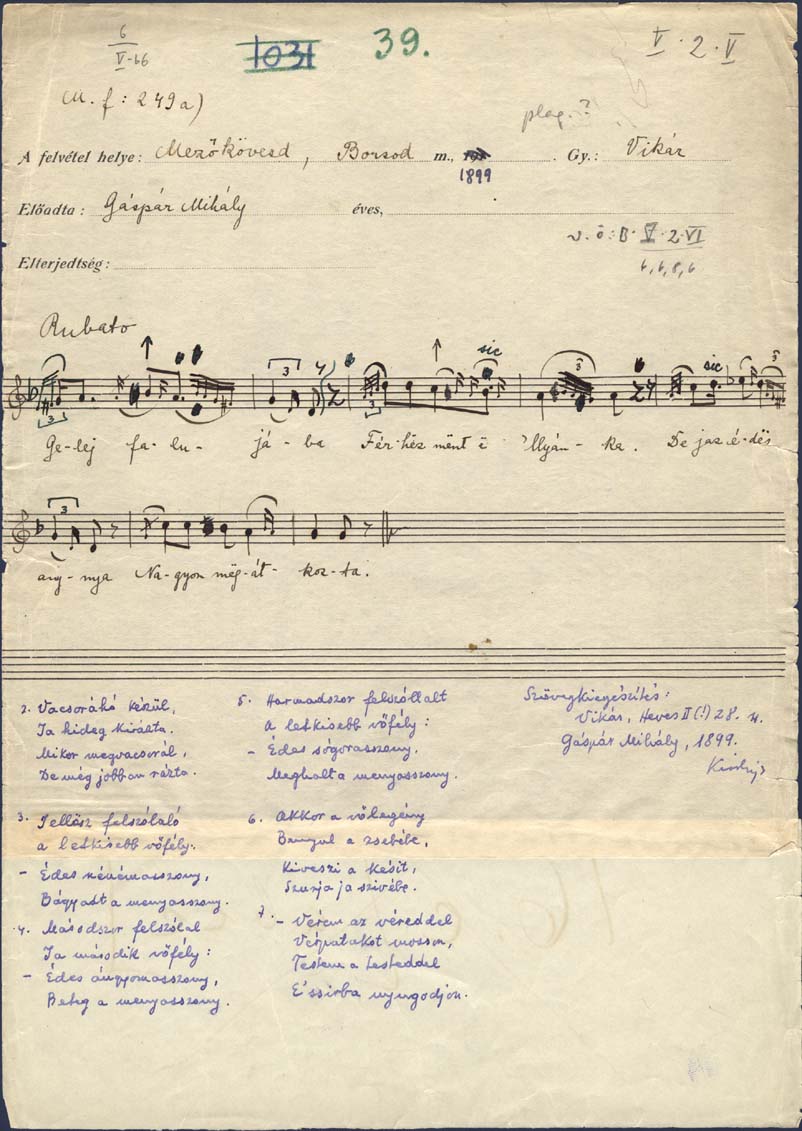 6
V-66
1031
39.
V · 2 · V
M. f : 249a)
plag. ?
A felvétel helye: Mezőkövesd, Borsod m., 1899. Gy.: Vikár
Előadta: Gáspár Mihály éves,
v. ö: B· V · 2 · VI
6, 6, 8, 6
Elterjedtség:
Rubato
3 3 sic 3 sic 3
3 3
Ge-lej fa-lu- já-ba Fér-hëz mënt ë Ilyán-ka. De jaz é-dës
3
any-nya Na-gyon mëg-át-koz-ta.
2. Vacsoráhó készül,
Ja hideg kirázta.
Mikor megvacsorál,
De még jobban rázta.
3. Jellősz felszólaló
a letkisebb vőfély:
- Édes nénémasszony,
Bágyadt a menyasszony.
4. Másodszor felszólal
Ja második vőfély:
- Édes ángyomasszony,
Beteg a menyasszony.
5. Harmadszor felszóllalt
A letkisebb vőfély:
- Édes sógorasszony,
Meghalt a menyasszony.
6. Akkor a vőlegény
Benyul a zsebébe,
Kiveszi a késit,
Szurja ja szivébe.
7. - Vérem az véreddel
Vérpatakot mosson,
Testem a testeddel
E'ssirba nyugodjon.
Szövegkiegészítés:
Vikár, Heves II (!) 28.
Gáspár Mihály, 1899.